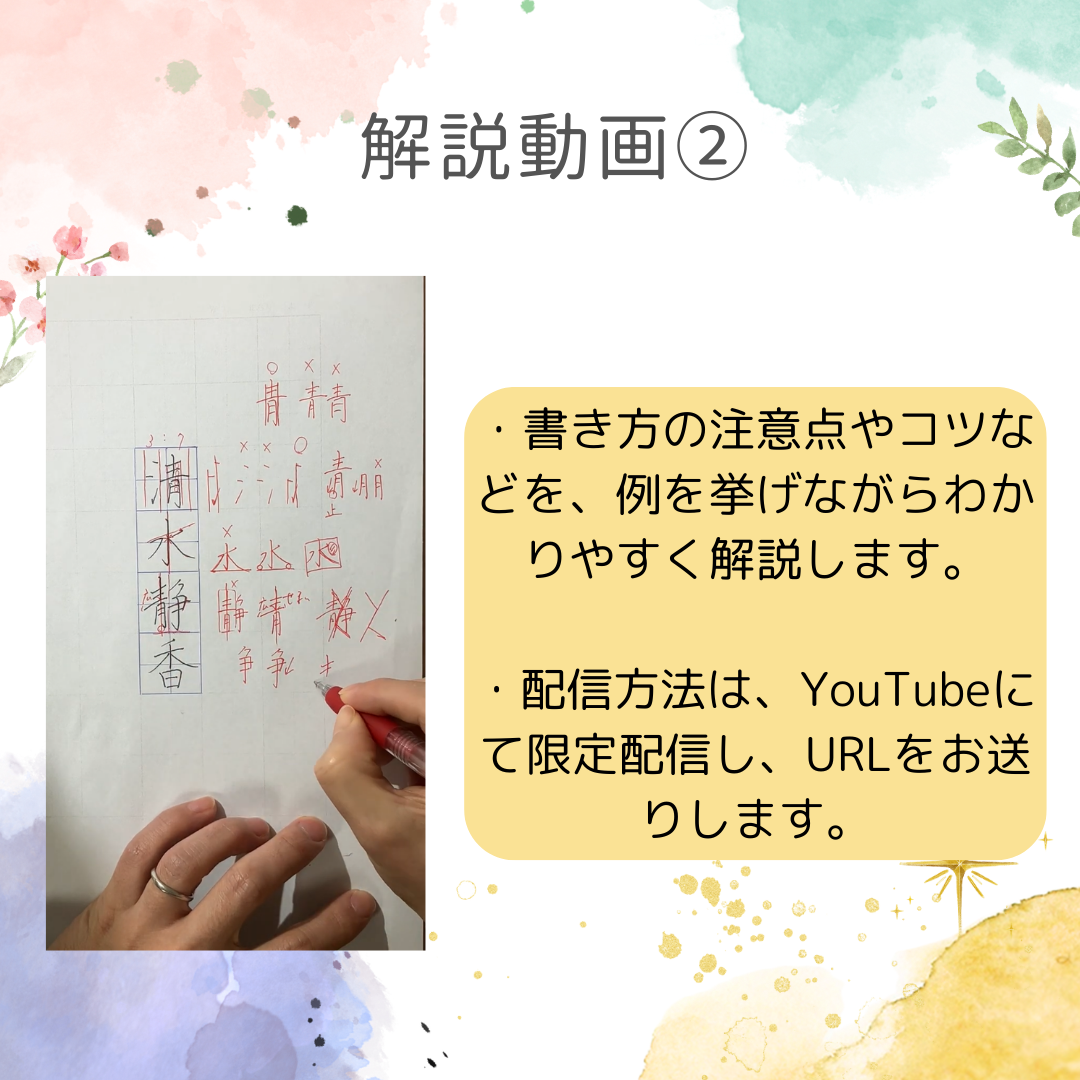 解説動画②
・書き方の注意点やコツな
どを、例を挙げながらわか
りやすく解説します。
・配信方法は、YouTubeに
て限定配信し、URLをお送
りします。
○ × ×
青 青 青
3:7
清
水
静
香
× × ○
×
水 水 水
争 争